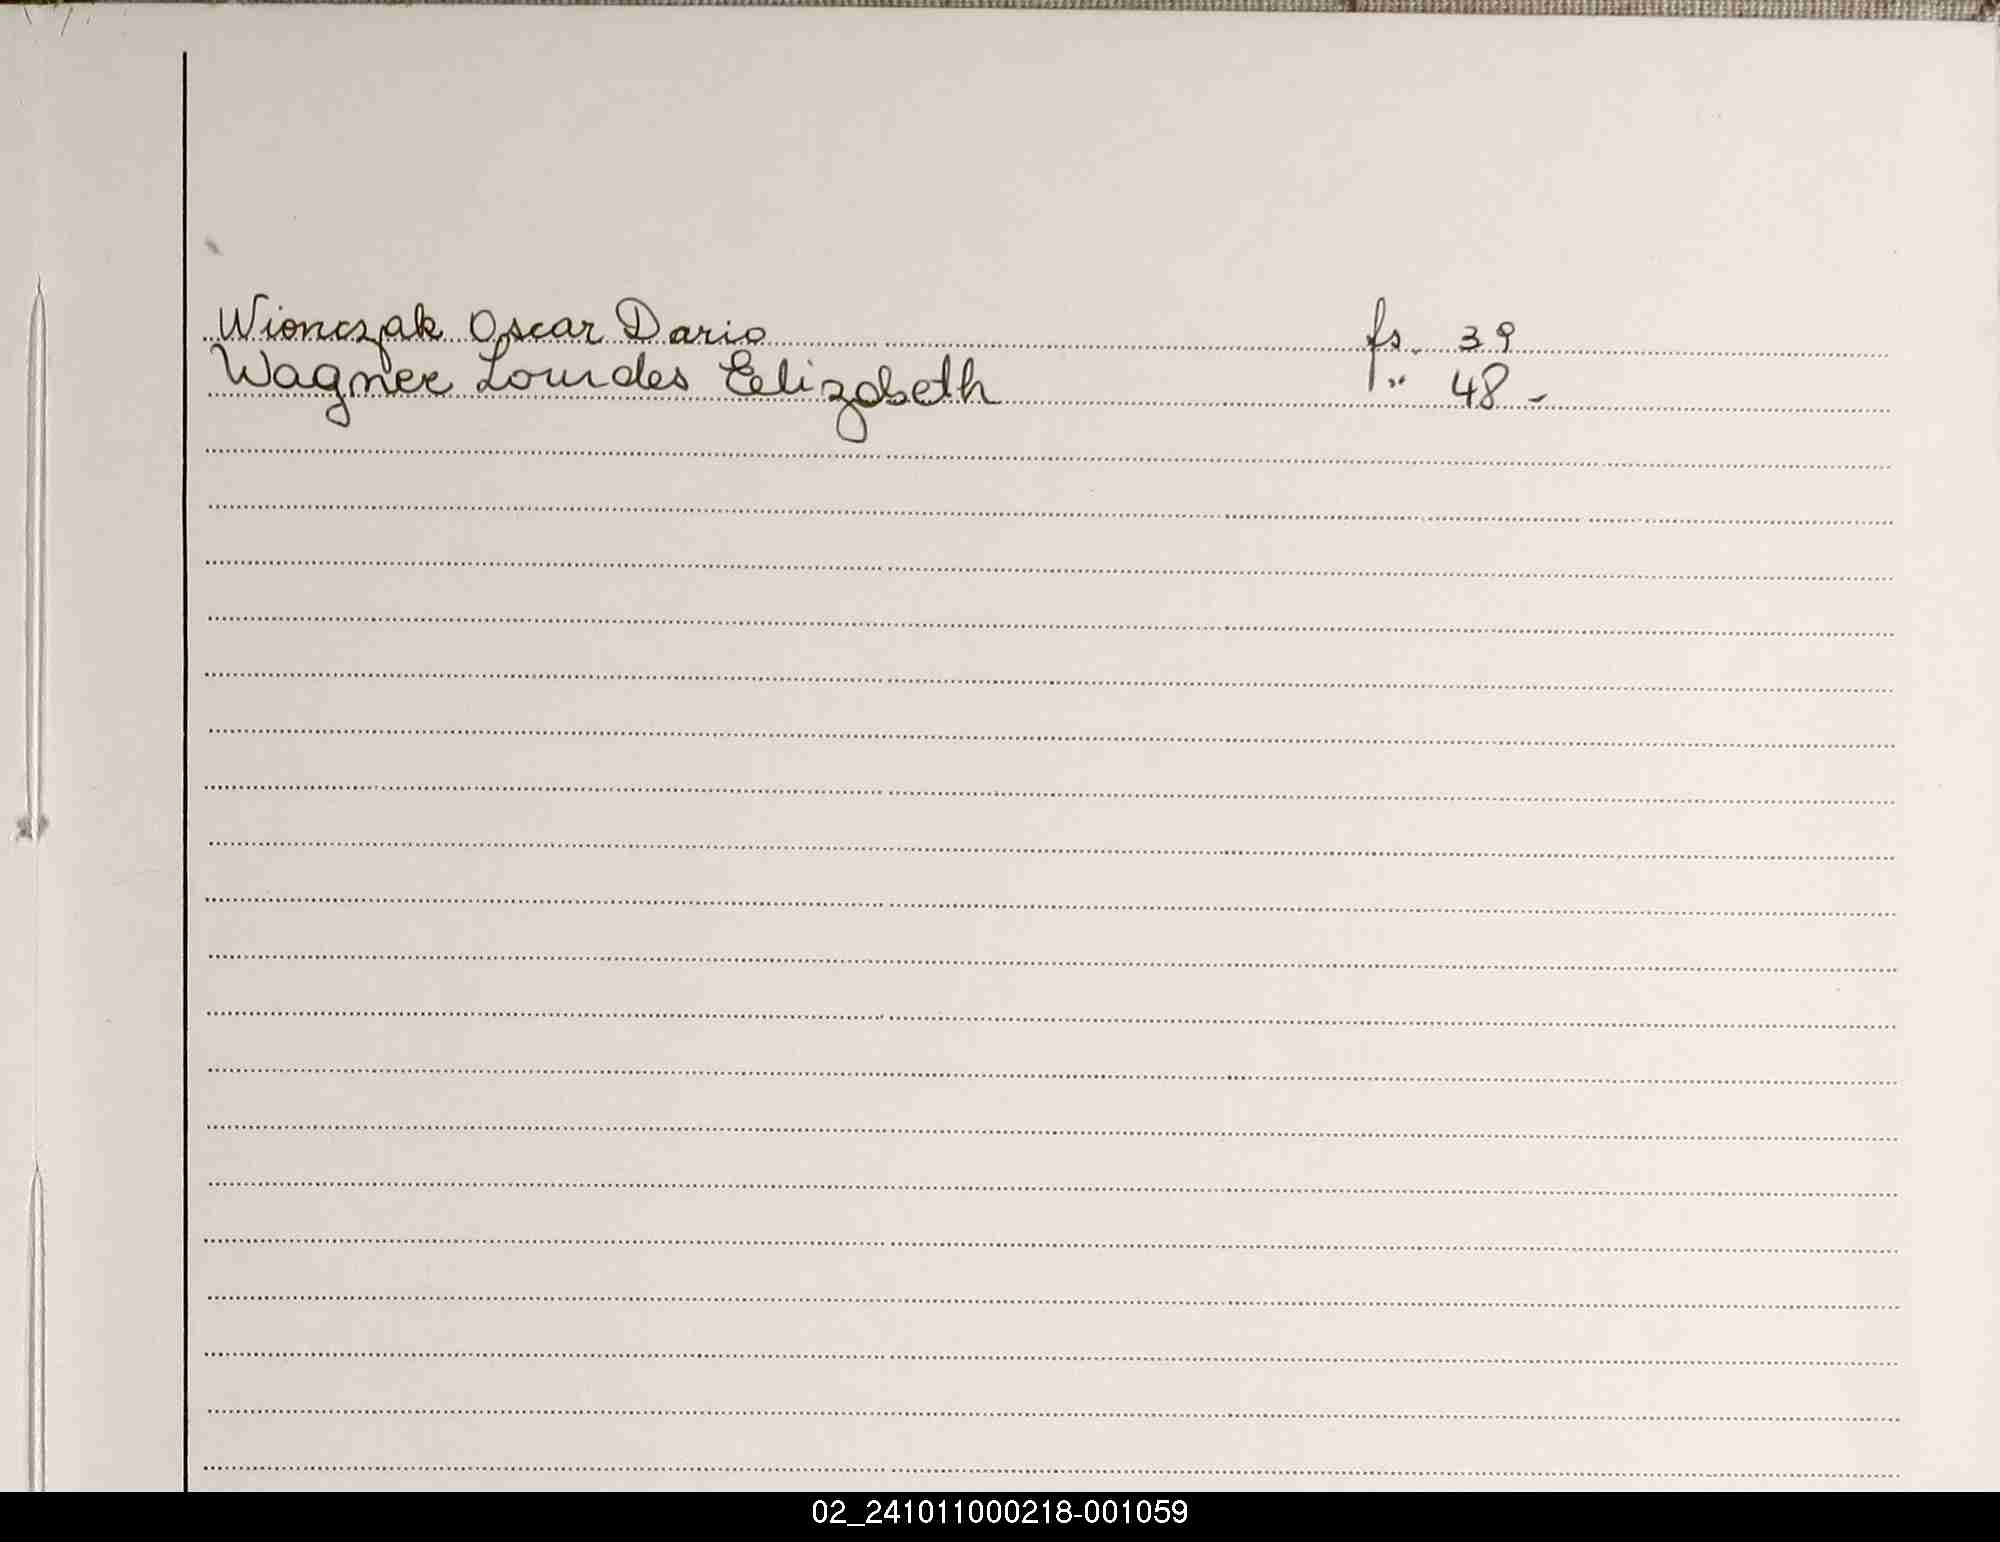 Wionczak Oscar Dario fs. 39
Wagner Lourdes Elizabeth " 48 -
02_241011000218-001059